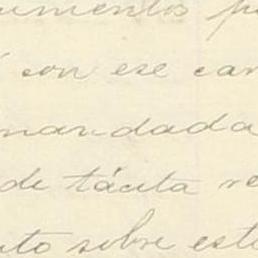 umentos p
i con ese car
mandada
de tácita re
nto sobre este